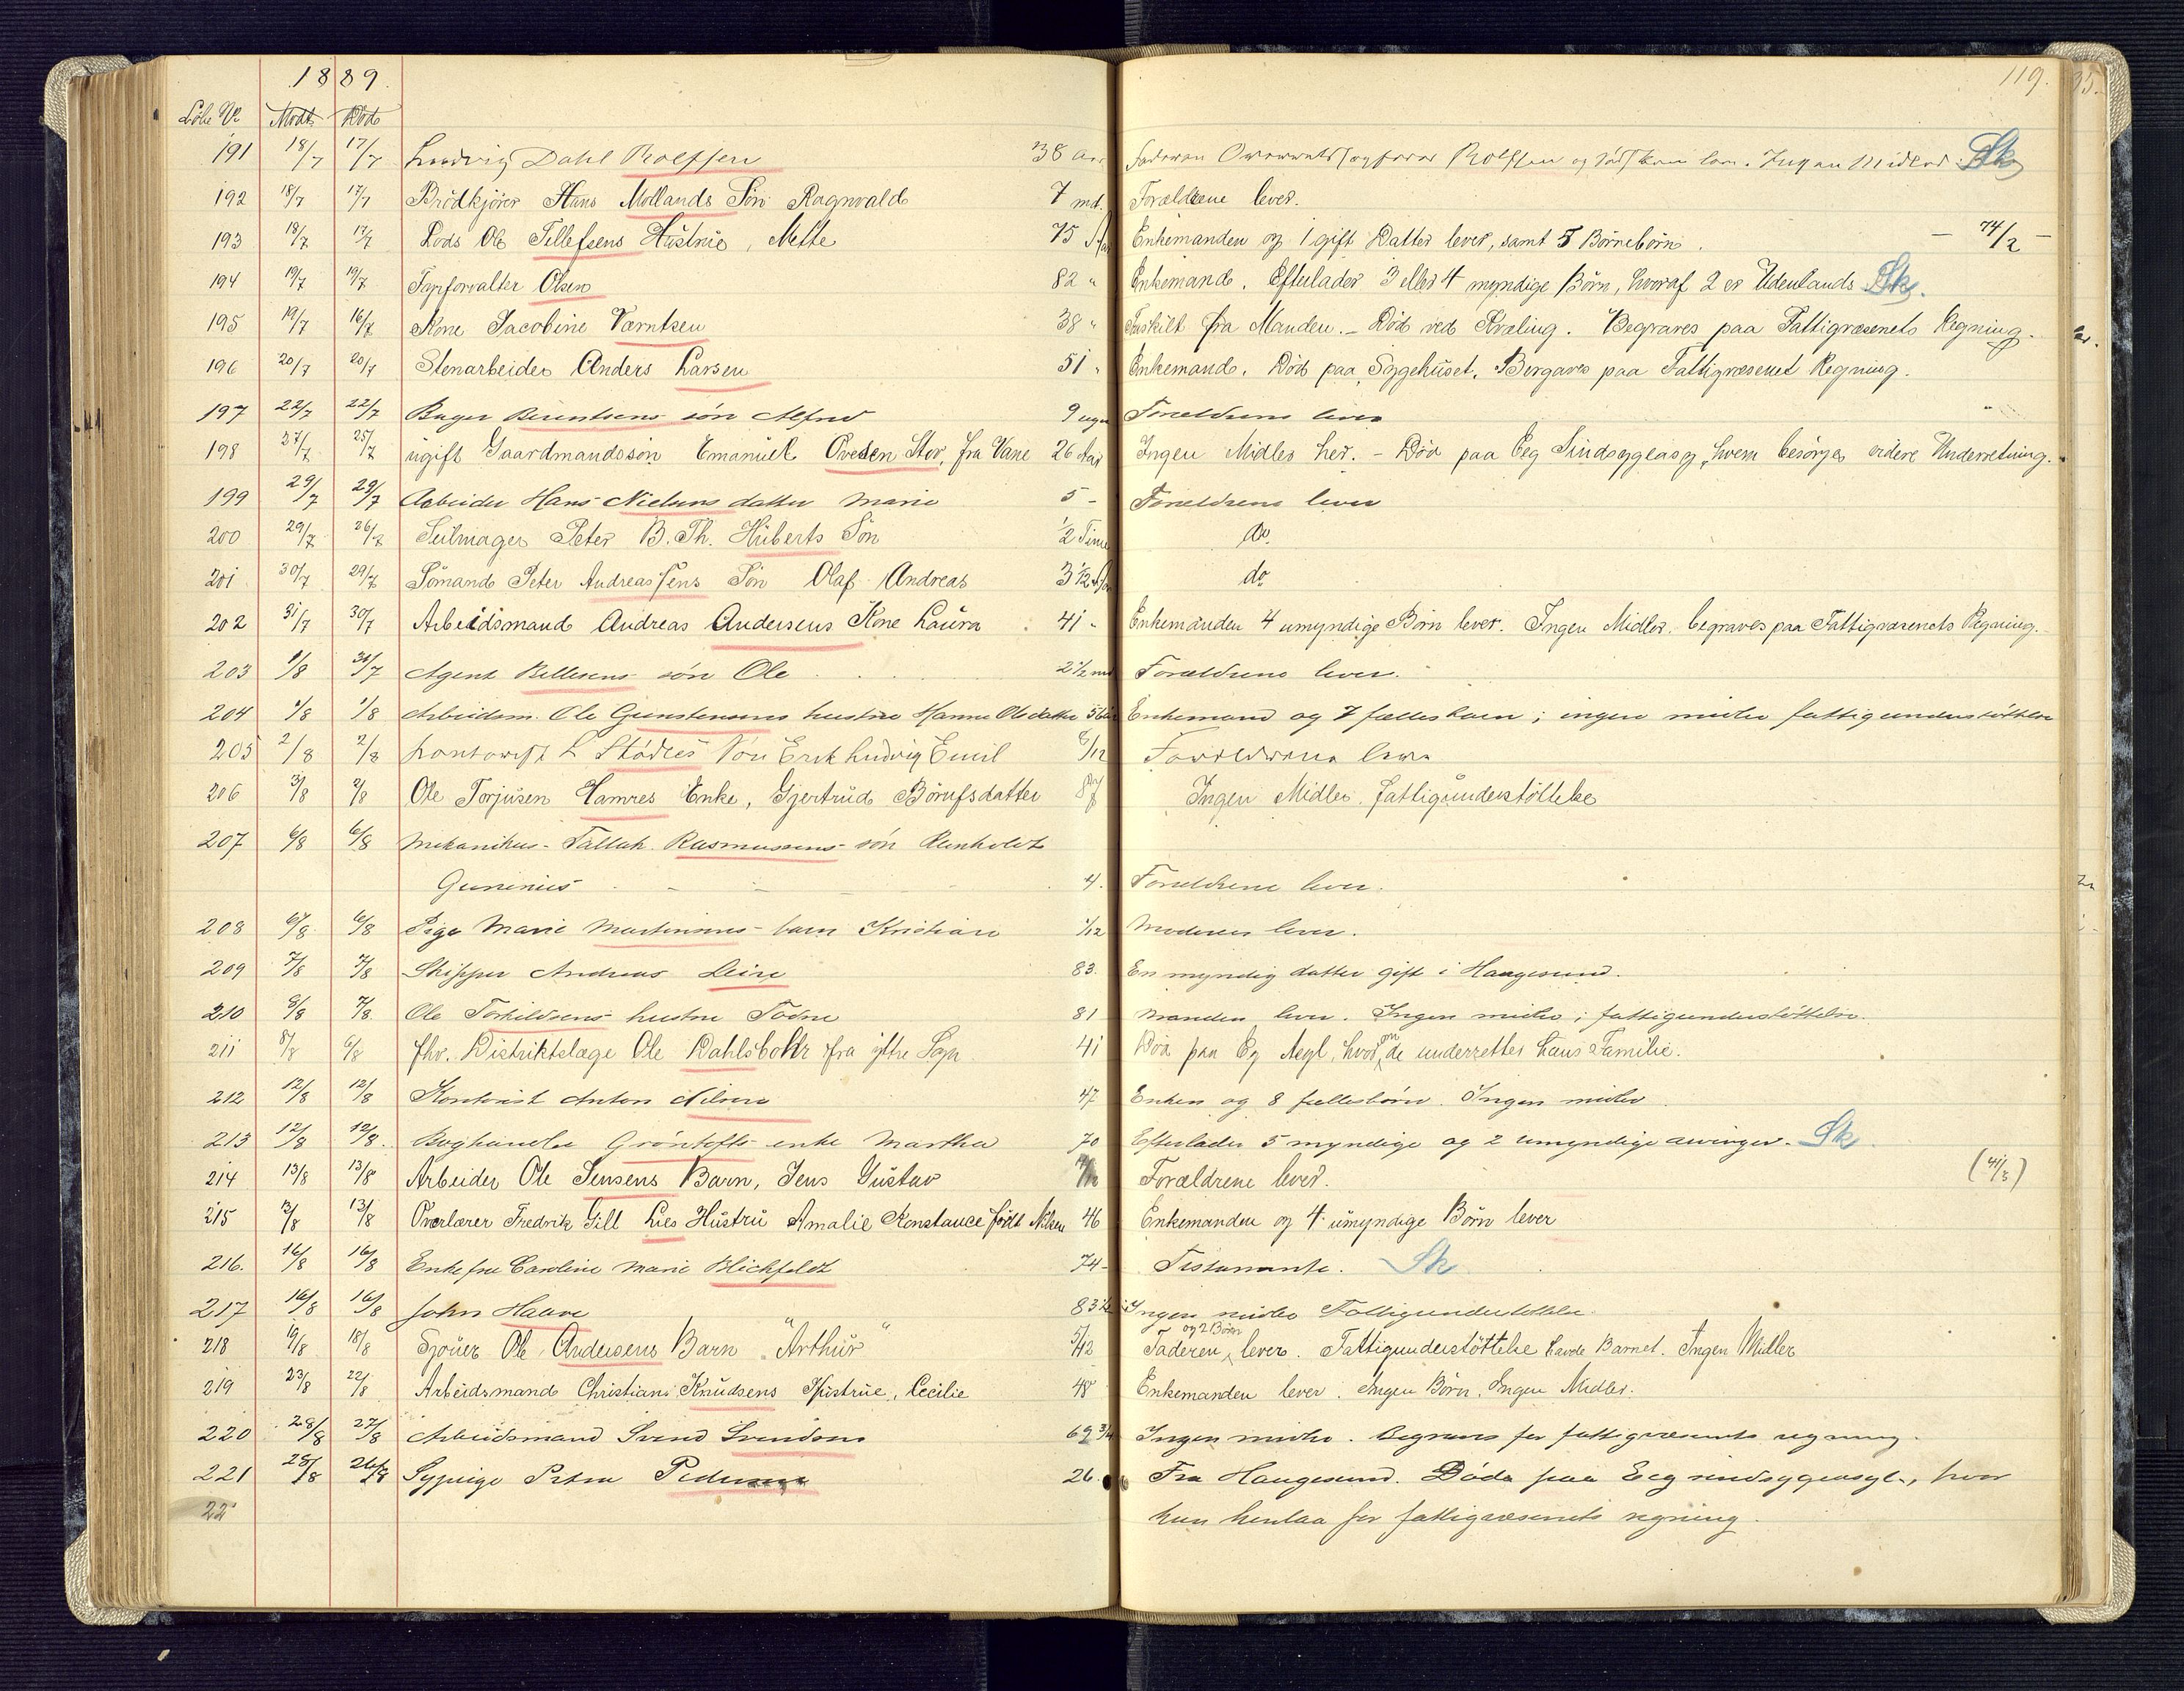 1889.
119.
Löbe No Modt. Död
191 18/7 17/7 Ludvig Dahl Rolfsen 38 Aar Faderen Overretssagförer Rolfsen og Södskene lever. Ingen Midler. Sk
192 18/7 17/7 Brödkjörer Hans Mollands Sön Ragnvald 7 md. Forældrene lever.
193 18/7 17/7 Lods Ole Tellefsens Hustrue, Mette 75 Aar Enkemanden og 1 gift Datter lever, samt 5 Börnebörn. — 74/2 —
194 19/7 19/7 Olsen 82 " Enkemand. Efterlader 3 eller 4 myndige Börn, hvoraf 2 er Udenlands Sk.
195 19/7 16/7 Kone Jacobine Værntsen 38 " Fraskilt fra Manden. - Död ved Kvæling. Begraves paa Fattigvæsenets Regning.
196 20/7 20/7 Stenarbeider Anders Larsen 51 " Enkemand. Död paa Sygehuset. Bergaves paa Fattigvæsenet Regning.
197 22/7 22/7 Bager Berentsens sön Alfred 9 uger Forældrene lever
198 27/7 25/7 ugift Gaardmandssön Emanuel Ovesen Stor, fra Vane 26 Aar Ingen Midler her. - Död paa Eeg Sindsygeasyl, hvem besörger videre Underretning.
199 29/7 29/7 Arbeider Hans Nielsens datter Marie 5 - Forældrene lever
200 29/7 26/7 Seilmager Peter B. Th. Huberts Sön 1/2 Time do
201 30/7 29/7 Sömand Peter Andreassens Sön Olaf Andreas 3 1/2 Aar do
202 31/7 30/7 Arbeidsmand Andreas Andersens Kone Laura 41 " Enkemanden 4 umyndige Börn lever. Ingen Midler. begraves paa Fattigvæsenets Regning.
203 1/8 31/7 Agent Bellesens sön Ole 2 1/2 md Forældrene lever.
204 1/8 1/8 Arbeidsm. Ole Gunstensens hustru Hanne Olsdatter Enkemand og 7 fællesbarn; ingen midler fattigunderstöttelse
205 2/8 2/8 Kontorist L Stödles Sön Erik Ludvig Emil 8/12 Forældrene lever
206 3/8 2/8 Ole Torjusen Hamres Enke, Gjertrud Börufsdatter 87 Ingen Midler. fattigunderstöttelse
207 6/8 6/8 Mekanikus - Tallak Rasmussens sön Reinholdt
Guninius 4. Forældrene lever.
208 6/8 6/8 Pige Marie Martinsens barn Kristian 1/12 Moderen lever.
209 7/8 7/8 Skipper Andreas Leire 83. En myndig datter gift i Haugesund.
210 8/8 7/8 Ole Torkildsens hustru Todne 81 Manden lever. Ingen midler; fattigunderstöttelse.
211 8/8 6/8 fhv. Distriktslæge Ole Dahls fra ytre Sogn 41 Död paa Eg Asyl, hvor om de underretter hans Familie.
212 12/8 12/8 Kontorist Anton Nilsen 47 Enken og 8 fællesbörn. Ingen midler
213 12/8 12/8. Boghandler Gröntofts enke Martha 70 Efterlader 5 myndige og 2 umyndige arvinger. Sk
214 13/8 13/8 Arbeider Ole Jensens Barn, Jens Gustav Forældrene lever. (41/3)
215 13/8 13/8 Overlærer Fredrik Gill Lies Hustru Amalie Konstance født Nilsen 46 Enkemanden og 4 umyndige Börn lever
216. 16/8 16/8 Enkefru Caroline Marie Blichfeldt 74 - Testamente. Sk
217 16/8 16/8 John Haave 83 1/2 Ingen midler Fattigunderstöttelse.
218 19/8 18/8 Sjouer Ole Andersens Barn "Arthur" 5/12 Faderen og 2 Börn lever. Fattigunderstöttelse havde Barnet. Ingen Midler
219 23/8 22/8 Arbeidsmand Christian Knudsens Hustrue, Cecilie 48 Enkemanden lever. Ingen Börn. Ingen Midler.
220 28/8 27/8 Arbeidsmand Svend Svendsen 69 3/4 Ingen midler. Begraves for fattigvæsenets regning.
221 28/8 26/8 Sypige Petra Pedersen 26 Fra Haugesund. Döde paa Eeg sindsygeasyl, hvor
22 hun henlaa for fattigvæsenets regning.